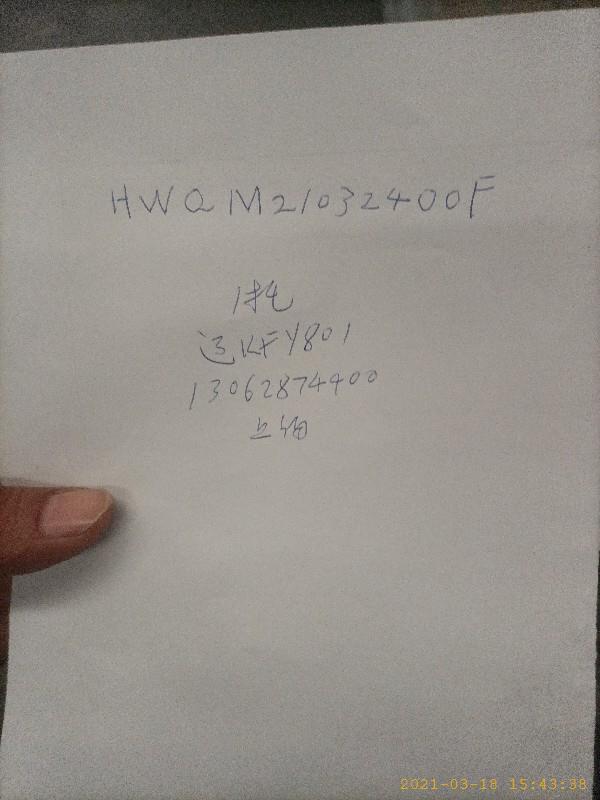 HWQM21032400F
1托
送KFY801
13062874400
2021-03-18 15:43:38